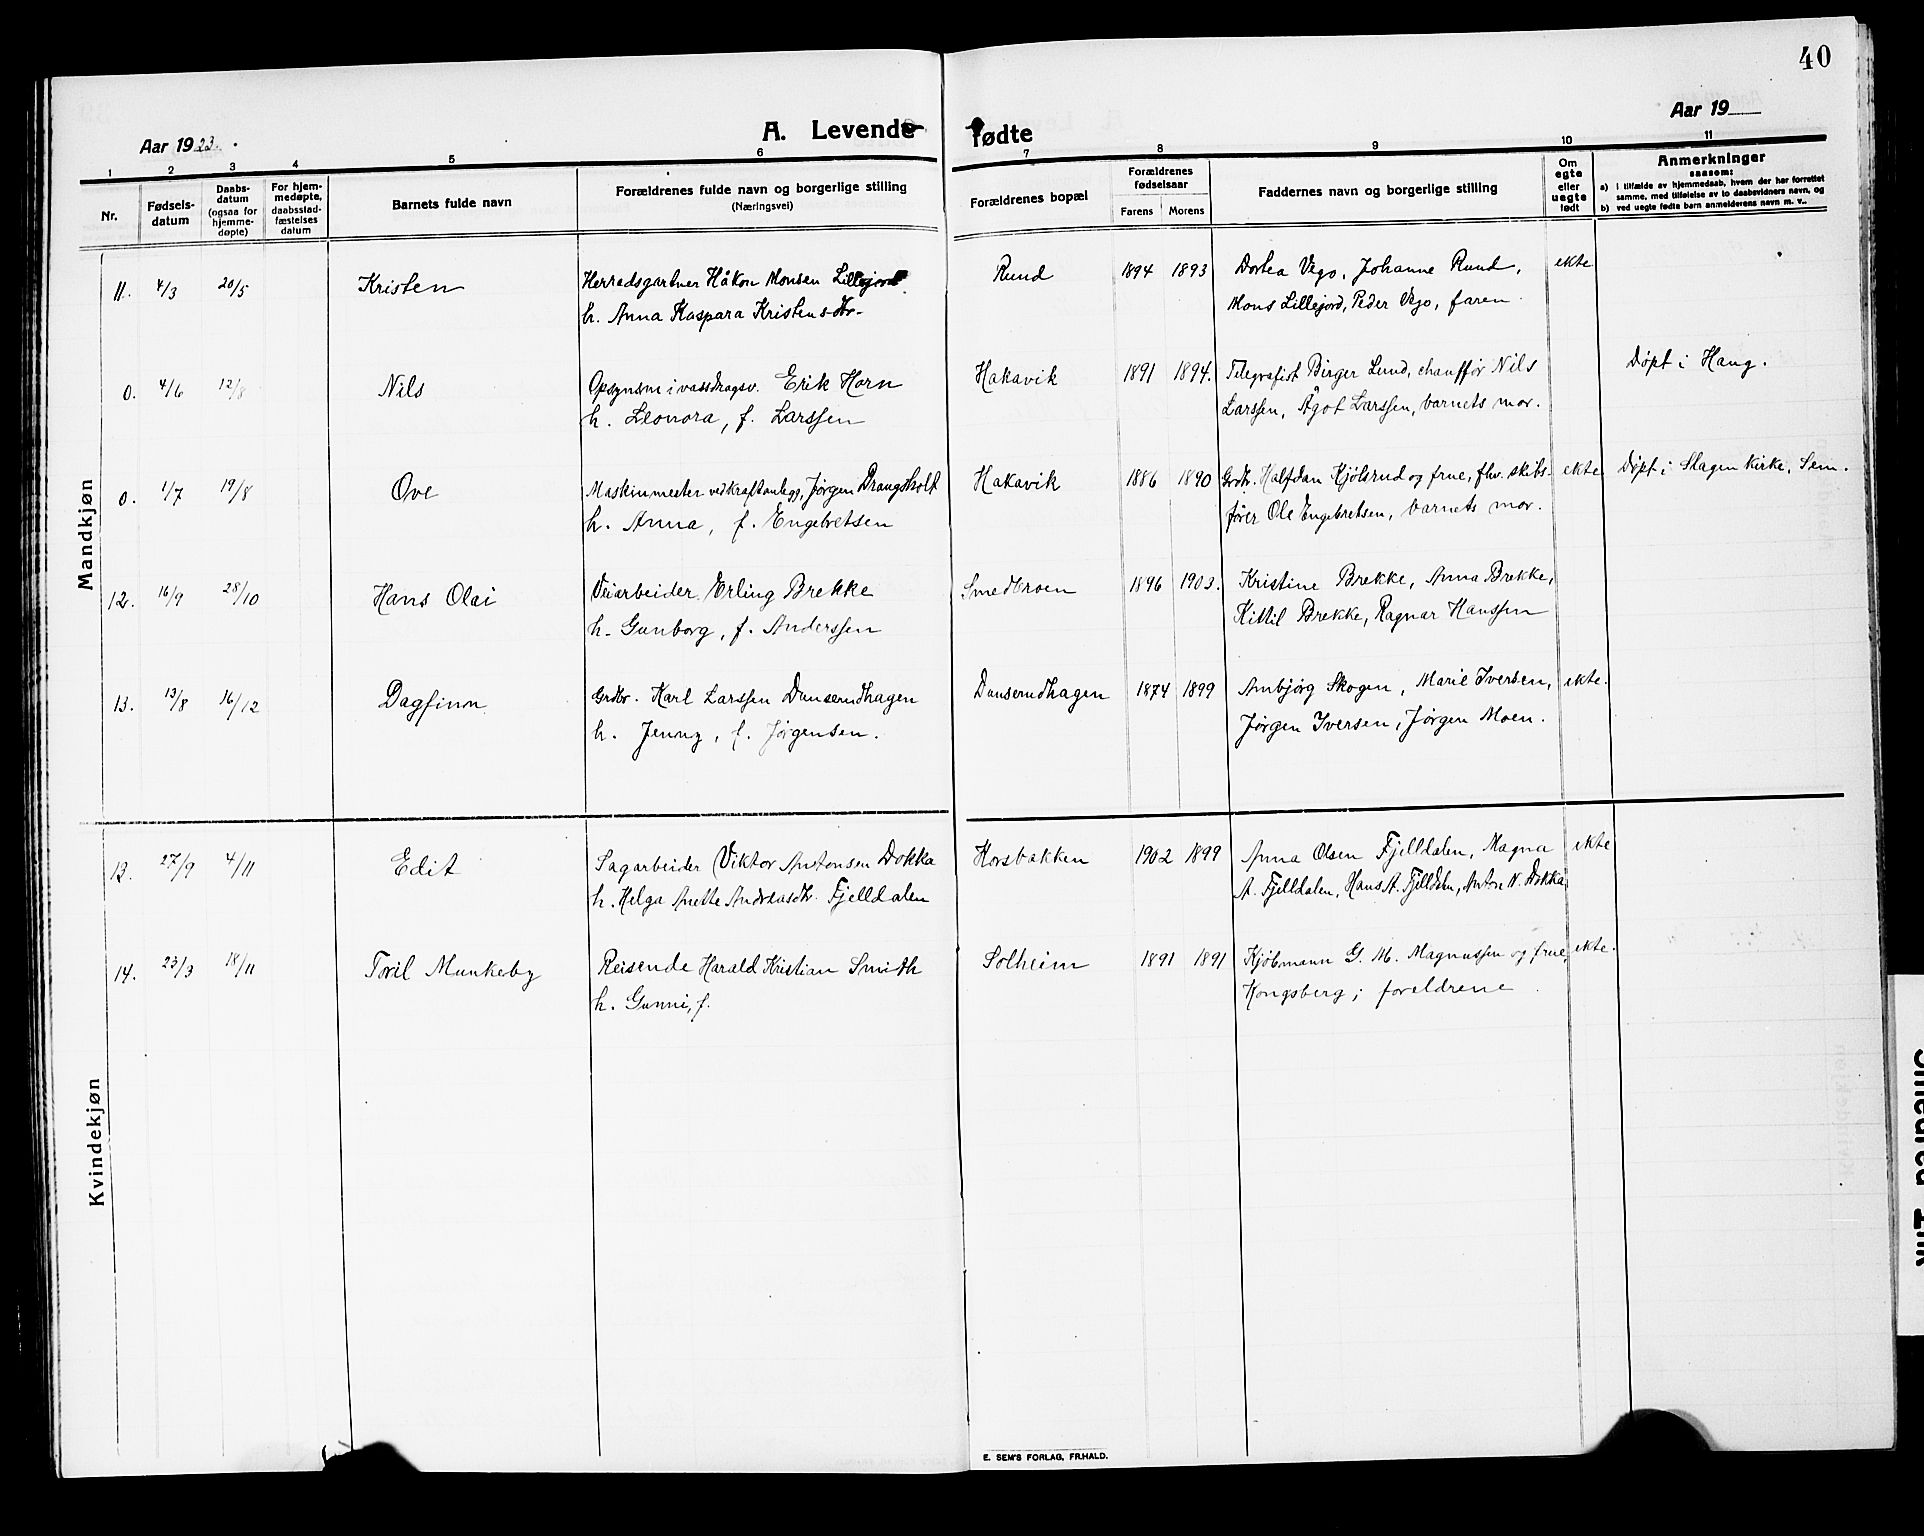 40
Aar 1923.
A. Levende fødte
Aar 19
1 2 3 4 5 6 7 8 9 10 11
Nr.
Fødsels-
datum
Daabs-
datum
(ogsaa for
hjemme-
døpte)
For hjem-
medøpte,
daabsstad-
fæstelses
datum
Barnets fulde navn
Forældrenes fulde navn og borgerlige stilling
(Næringsvei)
Forældrenes bopæl
Forældrenes
fødselsaar
Farens Morens
Faddernes navn og borgerlige stilling
Om
egte
eller
uegte
født
Anmerkninger
saasom:
a) i tilfælde av hjemmedaab, hvem der har forrettet
samme, med tilføielse av to daabsvidners navn, og
b) ved uegte fødte barn anmelderens navn m. v..
Mandkjøn
11. 4/3 20/5 Kristen Herredsgartner Håkon Monsen Lillejord Rund 1894 1893 Dortea Vego, Johanne Rund, ekte
h. Anna Kaspara Kristensdtr. Mons Lillejord, Peder Vego, faren.
0. 4/6 12/8 Nils Opsynsm i vassdragsv. Erik Horn Hakavik 1891 1894. Telegrafist Birger Lund, chauffør Nils Døpt i Haug.
h. Leonora, f. Larssen Larssen, Ågot Larssen, barnets mor.
0. 1/7 19/8 Ove Maskinmester ved kraftanlegg, Jørgen Drangsholt Hakavik 1886 1890 Grdbr. Halfdan Kjølsrud og frue, fhv. skibs- ekte Døpt i Slagen Kirke, Sem.
h. Anna, f. Engebretsen fører Ole Engebretsen, barnets mor.
12. 16/9 28/10 Hans Olai Veiarbeider Erling Brekke Smedbroen 1896 1903. Kristine Brekke, Anna Brekke,
h. Gunborg, f. Anderssen Kittil Brekke, Ragnar Hanssen
13. 13/8 16/12 Dagfinn Grdbr. Karl Larssen Dunserudhagen Dunserudhagen 1874 1899 Ambjørg Skogen, Marie Iversen, ekte.
h. Jenny, f. Jørgensen. Jørgen Iversen, Jørgen Moen.
Kvindekjøn
13. 27/9 4/11 Edit Sagarbeider Viktor Antonsen Dokka Horsbakken 1902 1899 Anna Olsen Fjelldalen, Magna ekte
h. Helga Anette Andreasdtr. Fjelldalen A. Fjelldalen, Hans A. Fjelldalen, Anton N. Dokka
14. 23/3 18/11 Toril Munkeby Reisende Harald Kristian Smith Solheim 1891 1891 Kjøbmann G. M. Magnussen og frue, ekte.
h. Gunni, f. Kongsberg; foreldrene.
E. SEM'S FORLAG, FR.HALD.